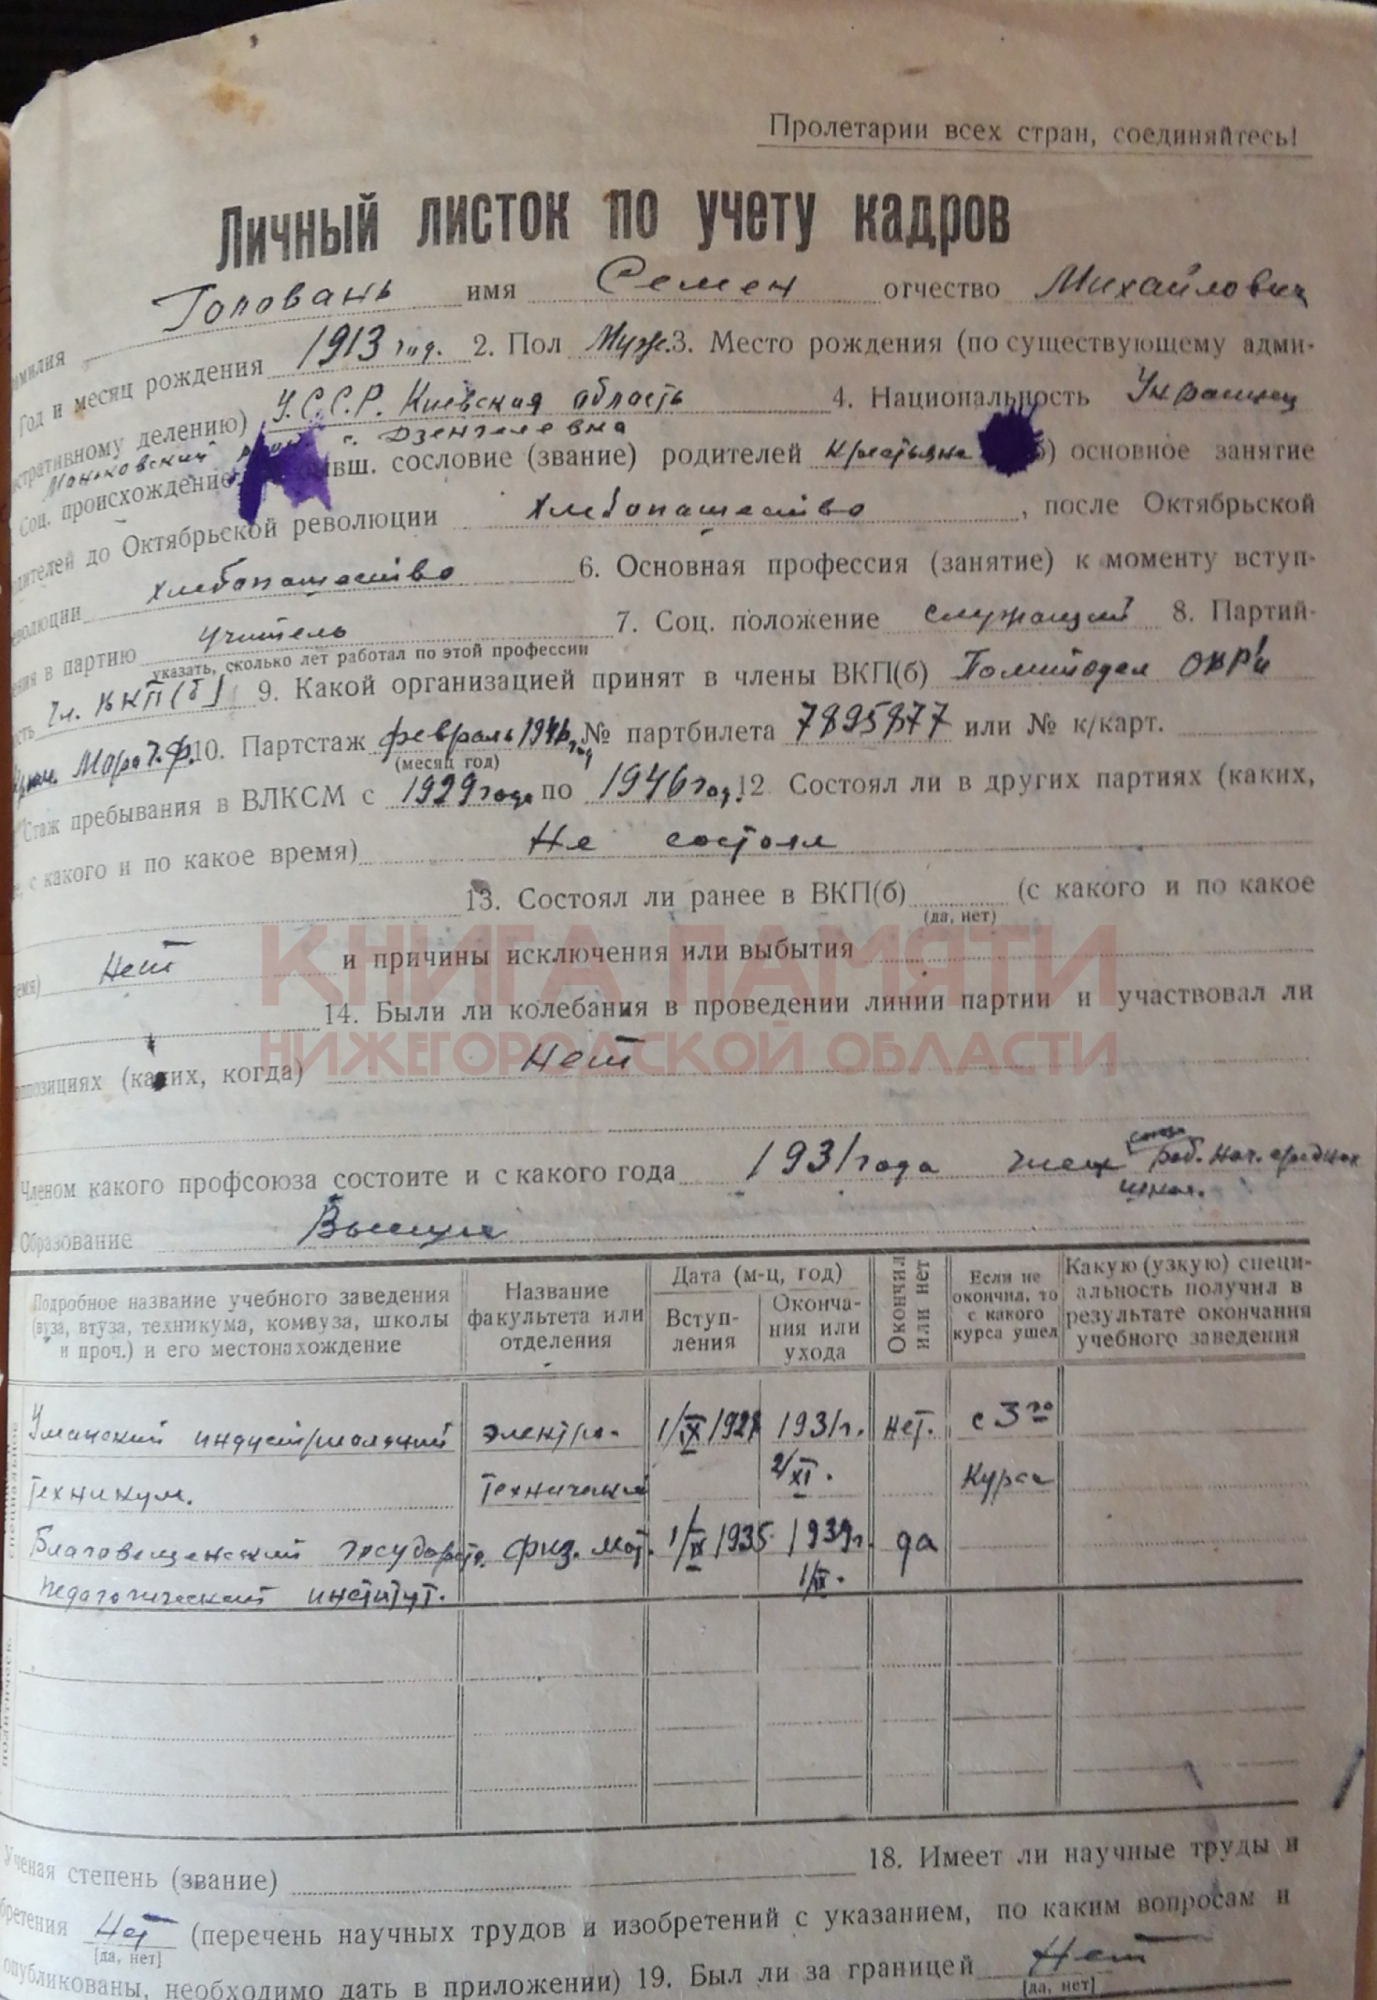 Пролетарии всех стран, соединяйтесь!
Личный листок по учету кадров
амилия Головань имя Семен отчество Михайлович
Год и месяц рождения 1913 год. 2. Пол Муж. 3. Место рождения (по существующему адми-
стративному делению) У.С.С.Р. Киевская область 4. Национальность Украинец
Маньковский с. Дзенгелевка
Соц. происхождение: вш. сословие (звание) родителей Крестьяне б) основное занятие
дителей до Октябрьской революции Хлебопашество, после Октябрьской
еволюции Хлебопашество 6. Основная профессия (занятие) к моменту вступ-
ения в партию учитель 7. Соц. положение служащий 8. Партий-
указать, сколько лет работал по этой профессии
ость Чл. ВКП(б) 9. Какой организацией принят в члены ВКП(б) Политотдел
10. Партстаж февраль 1946 год № партбилета 7895877 или № к/карт.
(месяц год)
Стаж пребывания в ВЛКСМ с 1929 года по 1946 год. 12. Состоял ли в других партиях (каких,
с какого и по какое время) Не состоял
13. Состоял ли ранее в ВКП(б) (с какого и по какое
(да, нет)
емя) Нет и причины исключения или выбытия
КНИГА ПАМЯТИ
14. Были ли колебания в проведении линии партии и участвовал ли
НИЖЕГОРОДСКОЙ ОБЛАСТИ
оппозициях (каких, когда) Нет
Членом какого профсоюза состоите и с какого года 1931 года член союза раб. нач. средних
школ.
Образование Высшее
Подробное название учебного заведения (вуза, втуза, техникума, комвуза, школы и проч.) и его местонахождение
Название факультета или отделения
Дата (м-ц, год)
Вступ-ления
Оконча-ния или ухода
Окончил или нет
Если не окончил, то с какого курса ушел
Какую (узкую) специ-альность получил в результате окончания учебного заведения
Уманский индустриальный электро- 1/IX 1928 1931г. нет. с 3го
техникум. технический 2/XI. курса
Благовещенский государств. физ. мат. 1/IX 1935 1939г. да
педагогический институт. 1/IX.
Ученая степень (звание) 18. Имеет ли научные труды и
бретения Нет (перечень научных трудов и изобретений с указанием, по каким вопросам и
[да, нет]
опубликованы, необходимо дать в приложении) 19. Был ли за границей Нет
[да, нет]